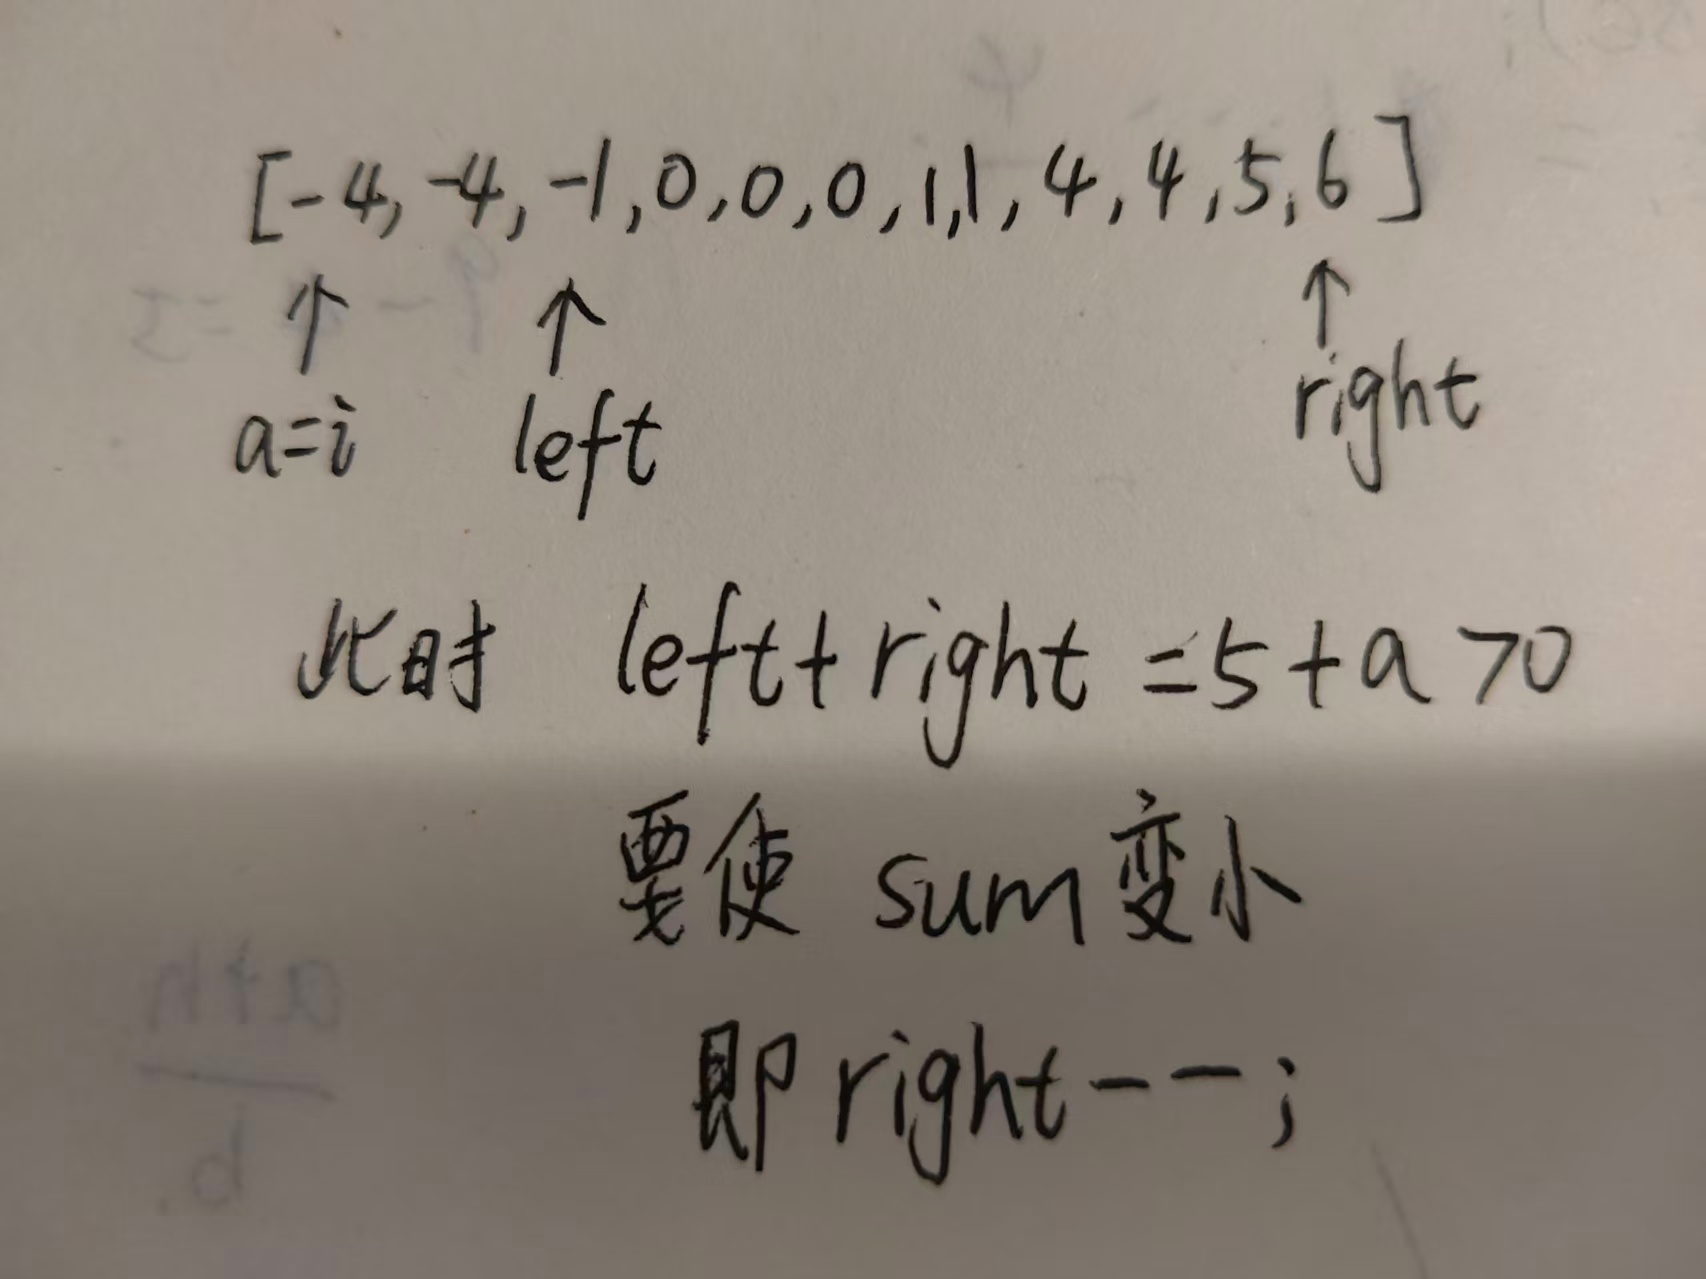 [-4, -4, -1, 0, 0, 0, 1, 1, 4, 4, 5, 6]
↑ ↑ ↑
a=i left right
此时 left+right=5+a>0
要使 sum变小
即right--;